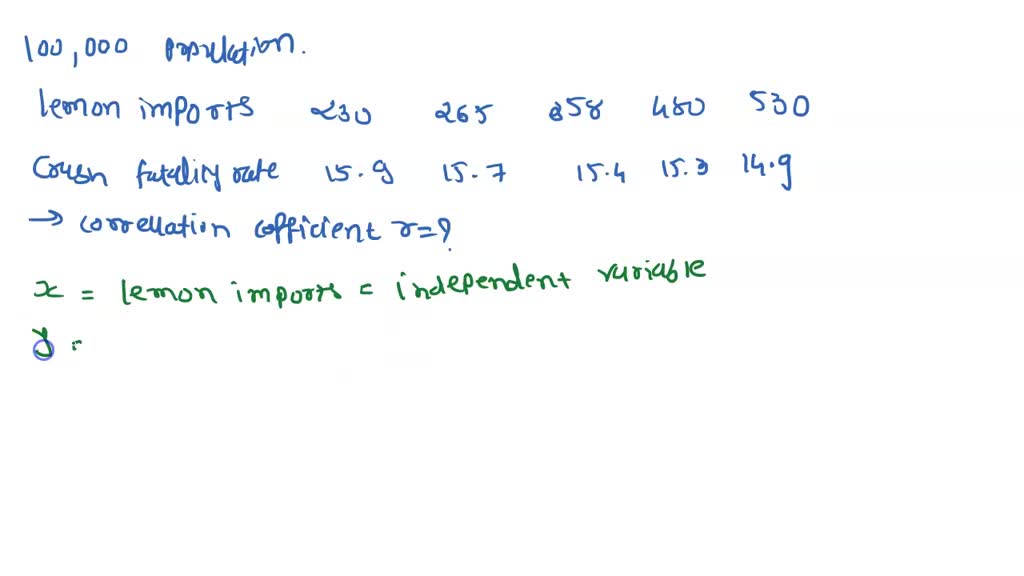 100,000 population.
lemon imports 230 265 358 480 530
Crush fatality rate 15.9 15.7 15.4 15.3 14.9
→ correllation cofficient r=?
x = lemon imports = independent variable
y =